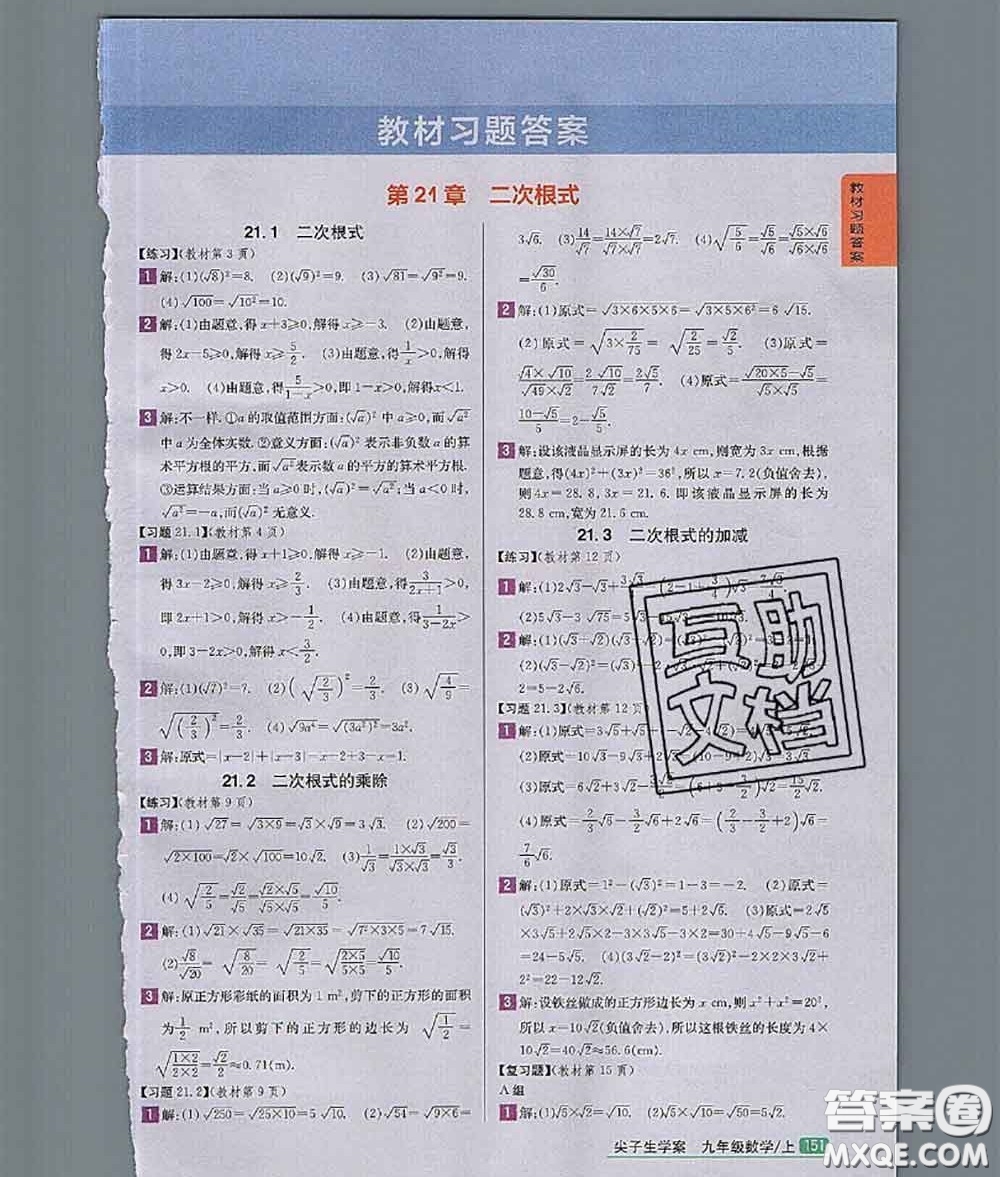 教材习题答案
第21章 二次根式
教材习题答案
21.1 二次根式
【练习】(教材第3页)
1 解:(1)(√8)²=8. (2)(√9)²=9. (3)√81=√9²=9.
(4)√100=√10²=10.
2 解:(1)由题意,得x+3≥0,解得x≥-3. (2)由题意,
得2x-5≥0,解得x≥5/2. (3)由题意,得1/x>0,解得
x>0. (4)由题意,得5/(1-x)>0,即1-x>0,解得x<1.
3 解:不一样.①a的取值范围方面:(√a)²中a≥0,而√a²
中a为全体实数.②意义方面:(√a)²表示非负数a的算
术平方根的平方,而√a²表示数a的平方的算术平方根.
③运算结果方面:当a≥0时,√a²=(√a)²;当a<0时,
√a²=-a,而(√a)²无意义.
【习题21.1】(教材第4页)
1 解:(1)由题意,得a+1≥0,解得a≥-1. (2)由题意,
得3x-2≥0,解得x≥2/3. (3)由题意,得3/(2x+1)>0,即
2x+1>0,解得x>-1/2. (4)由题意,得1/(3-2x)>
0,即3-2x>0,解得x<3/2.
2 解:(1)(√7)²=7. (2)(√(2/3))²=2/3. (3)√(4/9)=
√((2/3)²)=2/3. (4)√9a⁴=√(3a²)²=3a².
3 解:原式=|x-2|+|x-3|=x-2+3-x=1.
21.2 二次根式的乘除
【练习】(教材第9页)
1 解:(1)√27=√(3×9)=√3×√9=3√3. (2)√200=
√(2×100)=√2×√100=10√2. (3)1/√3=(1×√3)/(√3×√3)=√3/3.
(4)√(2/5)=√2/√5=(√2×√5)/(√5×√5)=√10/5.
2 解:(1)√21×√35=√(21×35)=√(7²×3×5)=7√15.
(2)√8/√20=√(8/20)=√(2/5)=√((2×5)/(5×5))=√10/5.
3 解:原正方形彩纸的面积为1 m²,剪下的正方形的面积
为1/2 m²,所以剪下的正方形的边长为√(1/2)=
√((1×2)/(2×2))=√2/2≈0.71(m).
【习题21.2】(教材第9页)
1 解:(1)√250=√(25×10)=5√10. (2)√54=√(9×6)=
3√6. (3)14/√7=(14×√7)/(√7×√7)=2√7. (4)√(5/6)=√5/√6=(√5×√6)/(√6×√6)=
√30/6.
2 解:(1)原式=√(3×6×5×6)=√(3×5×6²)=6√15.
(2)原式=√(3×2/75)=√(2/25)=√2/5. (3)原式=
(√4×√10)/(√49×√2)=2√10/7√2=2√5/7. (4)原式=(√(20×5)-√5)/(√5×√5)=
(10-√5)/5=2-√5/5.
3 解:设该液晶显示屏的长为4x cm,则宽为3x cm.根据
题意,得(4x)²+(3x)²=36²,所以x=7.2(负值舍去),
则4x=28.8,3x=21.6.即该液晶显示屏的长为
28.8 cm,宽为21.6 cm.
21.3 二次根式的加减
【练习】(教材第12页)
1 解:(1)2√3-√3+
(2)5√3-3√75=5√3-
2 解:(1)(√3-√2)
(2)(√3-√2)²=(√3)²-2
2=5-2√6.
【习题21.3】(教材第12页)
1 解:(1)原式=3√5+√5
(2)原式=10√3-9√
(3)原式=12√2-
(4)原式=2/3√6-3/2√6+2√6=(2/3-3/2+2)√6=
7/6√6.
2 解:(1)原式=1²-(√3)²=1-3=-2. (2)原式=
(√3)²+2×√3×√2+(√2)²=5+2√6. (3)原式=2√5
×6√5+2√5×2√3-3√5-2√3=60+4√15-9√5-6√3
=24-5√15. (4)原式=(3√2)²-2×3√2×2+2²
=22-12√2.
3 解:设铁丝做成的正方形边长为x cm,则x²+x²=20²,
所以x=10√2(负值舍去),所以这根铁丝的长度为4×
10√2=40√2≈56.6(cm).
【复习题】(教材第15页)
A组
1 解:(1)√5×√10=√50=5√2. (2)
互助
文档
尖子生学案 九年级数学/上 151
答案圈
MXQE.COM